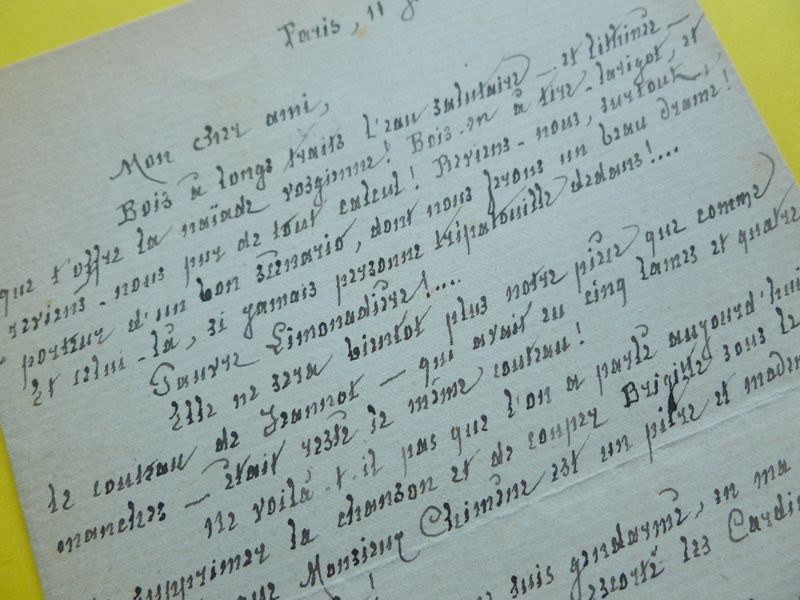 Paris, 11 
Mon cher ami,
Bois à longs traits l'eau salutaire – et lithinée –
que t'offre la naïade vosgienne! Bois-en à tire-larigot, et
reviens-nous pur de tout calcul! Reviens-nous, surtout,
porteur d'un bon scénario, dont nous ferons un beau drame!
Et celui-là, si jamais personne tripatouille dedans!....
Pauvre Limonadière!....
Elle ne sera bientôt plus notre pièce que comme
le couteau de Jeannot – qui avait eu cinq lames et quatre
manches – était resté le même couteau!
Ne voilà-t-il pas que l'on a parlé aujourd'hui
supprimer la chanson et de couper Brigitte sous le
que Monsieur Chimène est un pitre et
suis gendarmé, en ma
escorté les